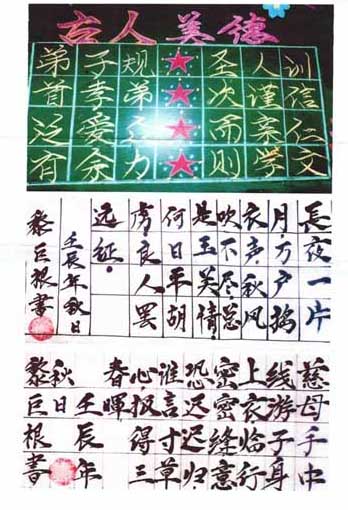 古人美德
弟子规★圣人训
首孝弟★次谨信
泛爱众★而亲仁
有余力★则学文
長夜一片
月。万户捣
衣声。秋风
吹不尽总
是玉关情。
何日平胡
虏良人罢
远征。
壬辰年秋日
黎巨根書
慈母手中
线游子身
上衣临行
密密缝意
恐迟迟归
谁言寸草
心报得三
春暉
壬辰年
秋日
黎巨根書